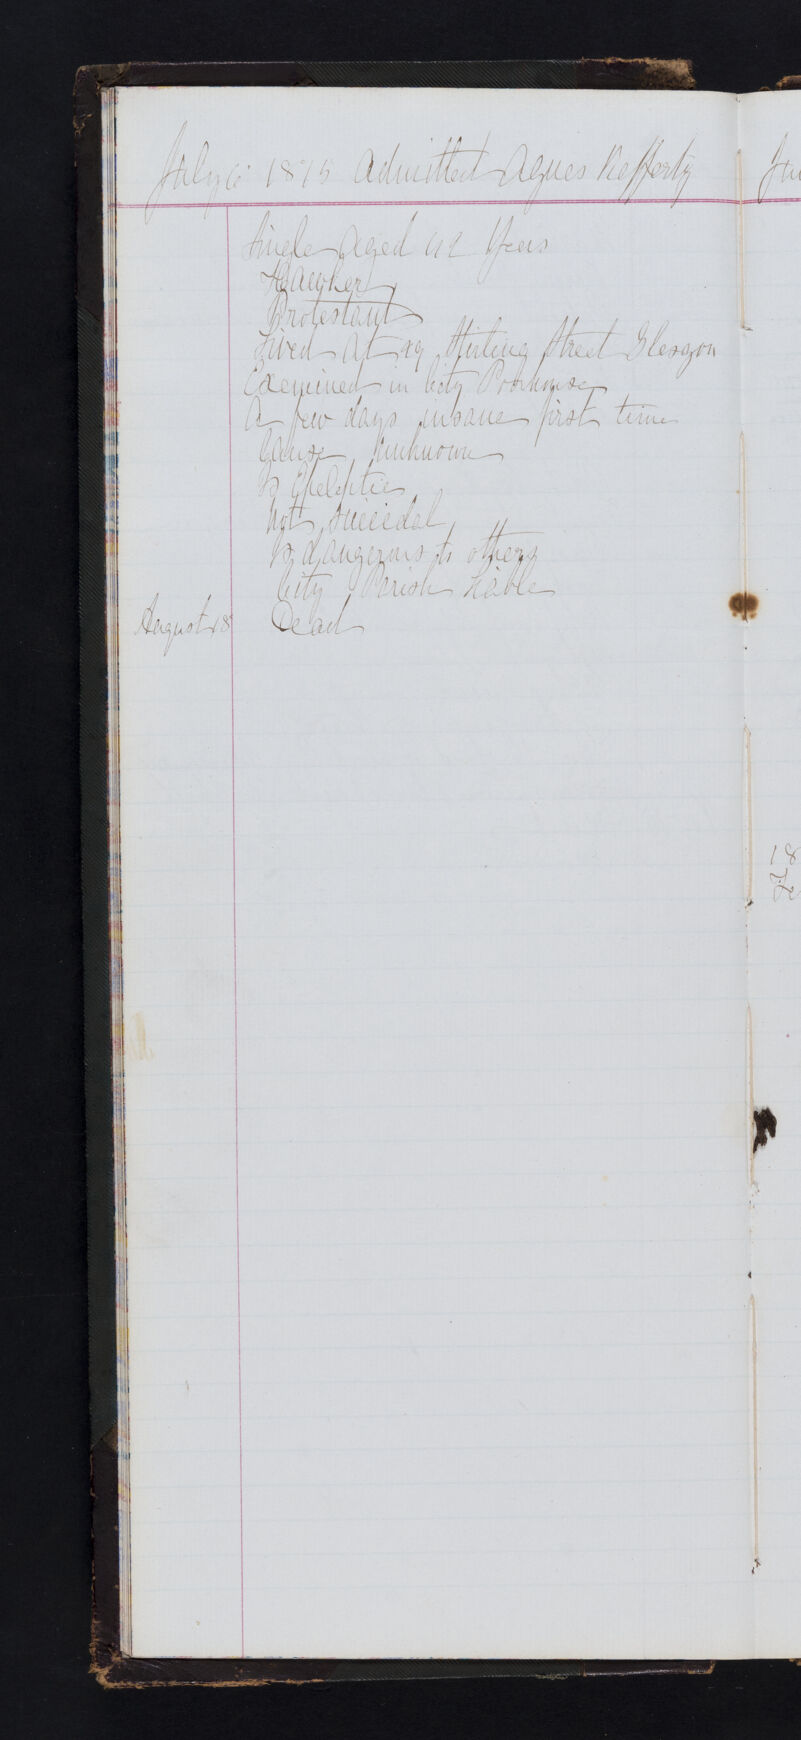 July 6 1875 Admitted Agnes Refferty
Single Aged 42 Years
Hawker
Protestant
Lived At 29 Stirling Street Glasgow
Examined in City Poorhouse
A few days insane first time
Cause Unknown
Is Epeleptic
Not Suicedal
Is dangerous to others
City Parish Liable
August 18 Dead